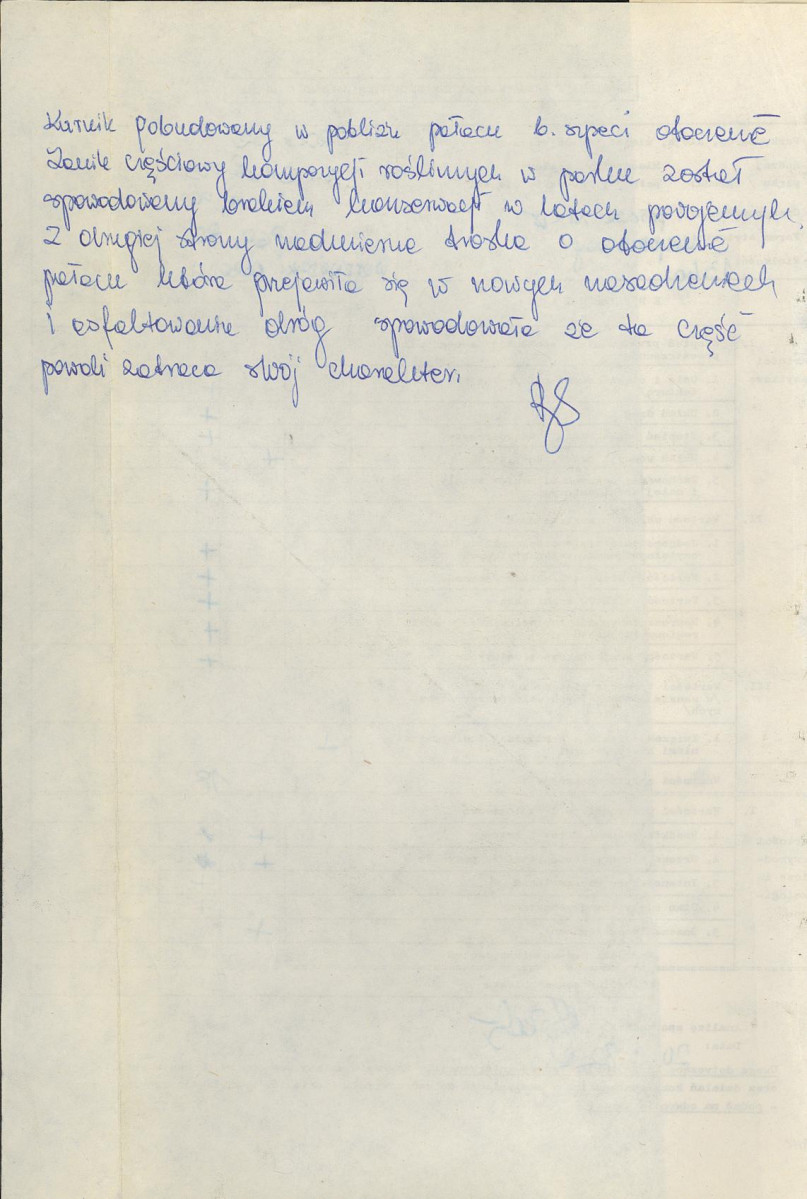 Kurnik pobudowany w pobliżu pałacu b. szpeci otoczenie
Zanik częściowy kompozycji roślinnych w parku został
spowodowany brakiem konserwacji w latach powojennych.
Z drugiej strony nadmierna troska o otoczenie
pałacu która przejawiła się w nowych nasadzeniach
i asfaltowaniu dróg spowodowała że ta część
powoli zatraca swój charakter.